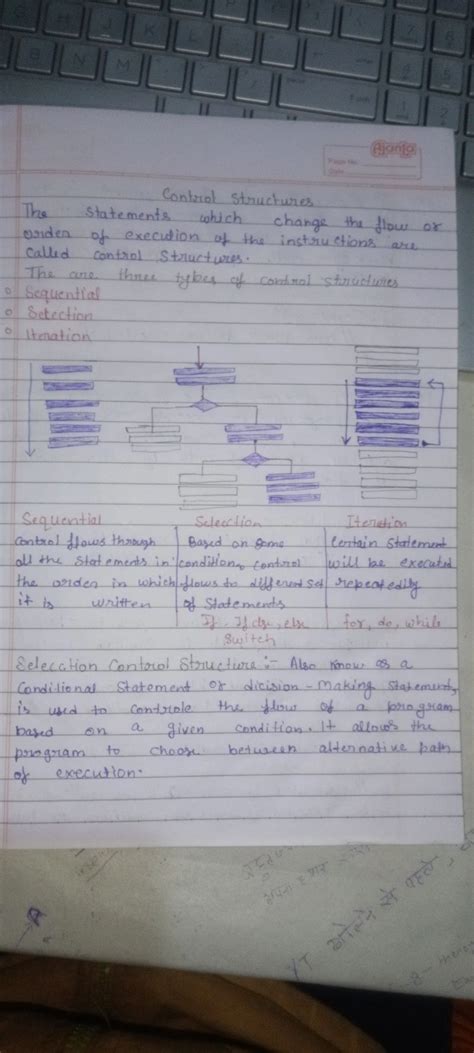 Ajanta
Page No.
Date
Control Structures
The statements which change the flow or
order of execution of the instructions are
called control structures.
The are three types of control structures
Sequential
Selection
Iteration
Sequential
control flows through
all the statements in
the order in which
it is written
Selecction
Based on some
condition, control
flows to different set
of statements
If, If else, else
switch
Iteration
Certain Statement
will be executed
repeatedily
for, do, while
Selecction Control Structure :- Also know as a
Conditional Statement or dicision-Making Statement,
is used to controle the flow of a program
based on a given condition. It allows the
program to choose between alternative path
of execution.
A
YT